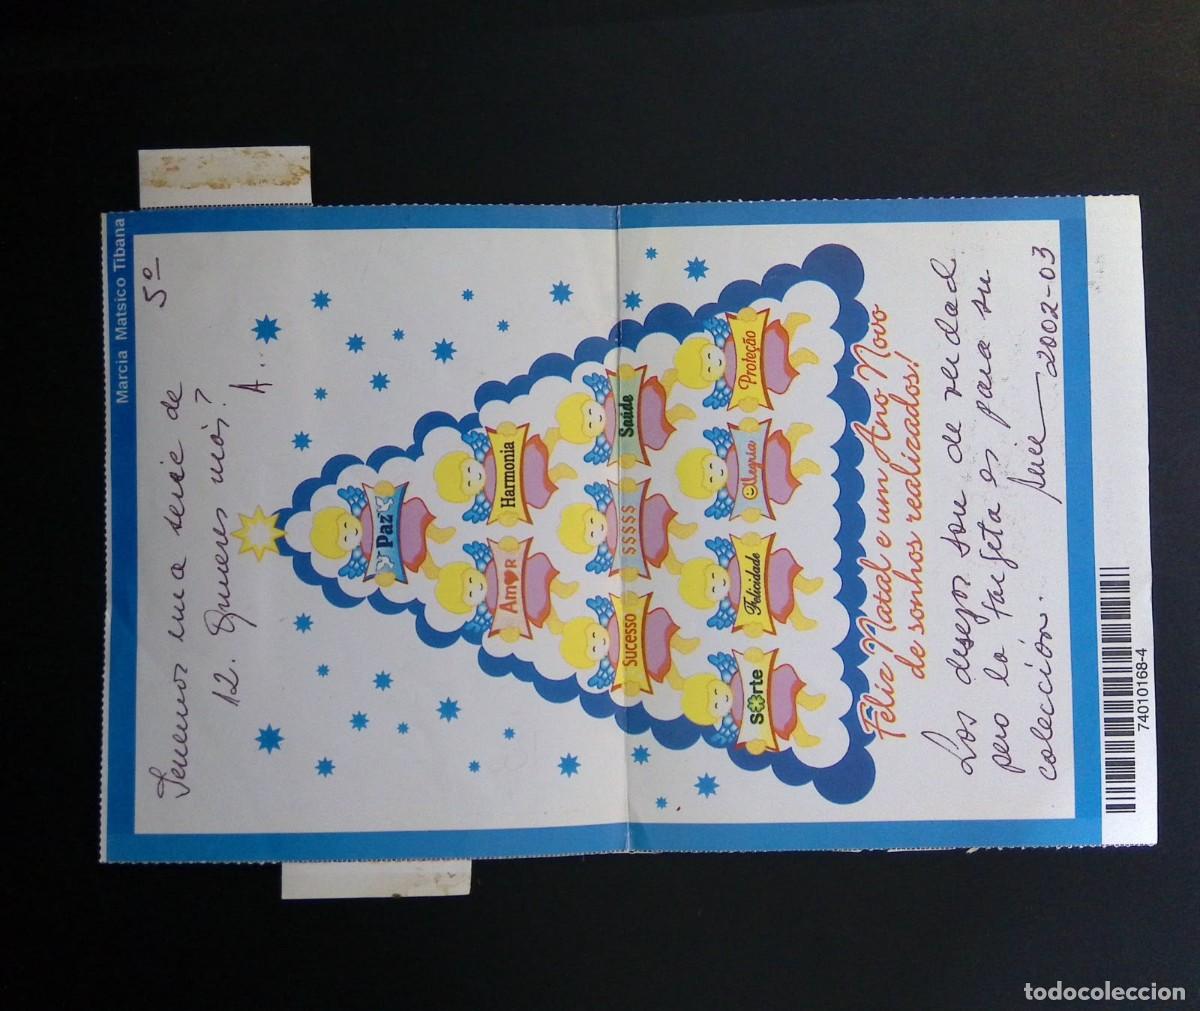 Marcia Matsico Tibana
5º
Tenemos una serie de
12. Quieres más?
A.
Paz
Amor
Harmonia
Sucesso
$$$$$
Saúde
Sorte
Felicidade
Alegria
Proteção
Feliz Natal e um Ano Novo
de sonhos realizados!
Los desejos son de verdad
pero la tarjeta es para su
colección.
2002-03
74010168-4
todocoleccion